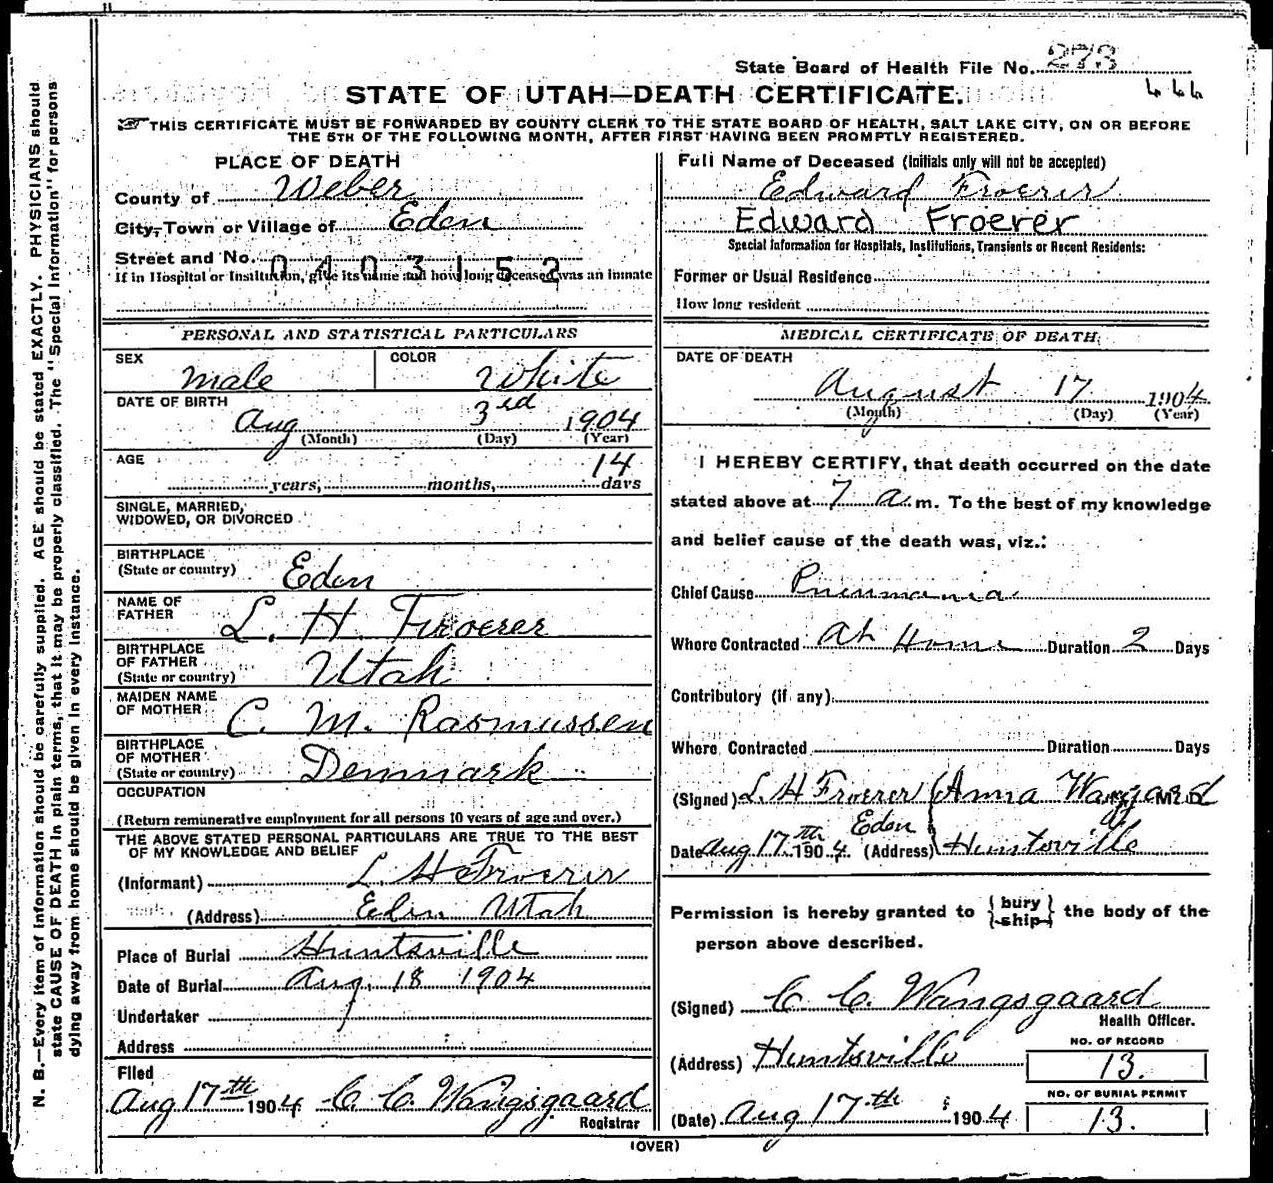 State Board of Health File No. 273
444
STATE OF UTAH—DEATH CERTIFICATE.
THIS CERTIFICATE MUST BE FORWARDED BY COUNTY CLERK TO THE STATE BOARD OF HEALTH, SALT LAKE CITY, ON OR BEFORE
THE 5TH OF THE FOLLOWING MONTH, AFTER FIRST HAVING BEEN PROMPTLY REGISTERED.
PLACE OF DEATH
County of Weber
City, Town or Village of Eden
Street and No.
0403152
If in Hospital or Institution, give its name and how long deceased was an inmate
Full Name of Deceased (Initials only will not be accepted)
Edward Froerer
Edward Froerer
Special Information for Hospitals, Institutions, Transients or Recent Residents:
Former or Usual Residence
How long resident
PERSONAL AND STATISTICAL PARTICULARS
SEX male COLOR White
DATE OF BIRTH
Aug 3rd 1904
(Month) (Day) (Year)
AGE 14
years, months, days
SINGLE, MARRIED,
WIDOWED, OR DIVORCED
BIRTHPLACE
(State or country) Eden
NAME OF
FATHER L. H. Froerer
BIRTHPLACE
OF FATHER
(State or country) Utah
MAIDEN NAME
OF MOTHER C. M. Rasmussen
BIRTHPLACE
OF MOTHER
(State or country) Denmark
OCCUPATION
(Return remunerative employment for all persons 10 years of age and over.)
THE ABOVE STATED PERSONAL PARTICULARS ARE TRUE TO THE BEST
OF MY KNOWLEDGE AND BELIEF
(Informant) L H Froerer
(Address) Eden Utah
Place of Burial Huntsville
Date of Burial Aug. 18 1904
Undertaker
Address
Filed
Aug 17th 1904 C. C. Wangsgaard
Registrar
MEDICAL CERTIFICATE OF DEATH
DATE OF DEATH
August 17 1904
(Month) (Day) (Year)
I HEREBY CERTIFY, that death occurred on the date
stated above at 7 a.m. To the best of my knowledge
and belief cause of the death was, viz.:
Chief Cause Pneumonia
Where Contracted At Home Duration 2 Days
Contributory (if any)
Where Contracted Duration Days
(Signed) L. H Froerer (Anna Wangaard M. D.
Date Aug 17th 1904. (Address) Eden Huntsville
Permission is hereby granted to { bury ship } the body of the
person above described.
(Signed) C. C. Wangsgaard
Health Officer.
(Address) Huntsville
NO. OF RECORD
13.
(Date) Aug 17th 1904
NO. OF BURIAL PERMIT
13.
(OVER)
N. B.—Every item of information should be carefully supplied. AGE should be stated EXACTLY. PHYSICIANS should
state CAUSE OF DEATH in plain terms, that it may be properly classified. The "Special Information" for persons
dying away from home should be given in every instance.